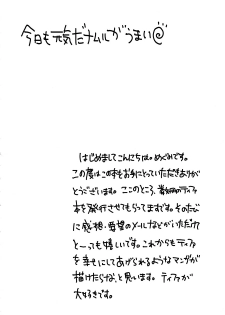 今日も元気だナムルがうまい@
はじめましてこんにちは。めぐみです。
この度はこの本をお手にとっていただきありが
とうございます。ここのところ、素細のティファ
本を発行させてもらってますです。そのたび
に感想・要望のメールなどがいただけて
とーっても嬉しいです。これからもティファ
を幸せにしてあげられるようなマンガが
描けたらな、と思います。ティファが
大好きです。